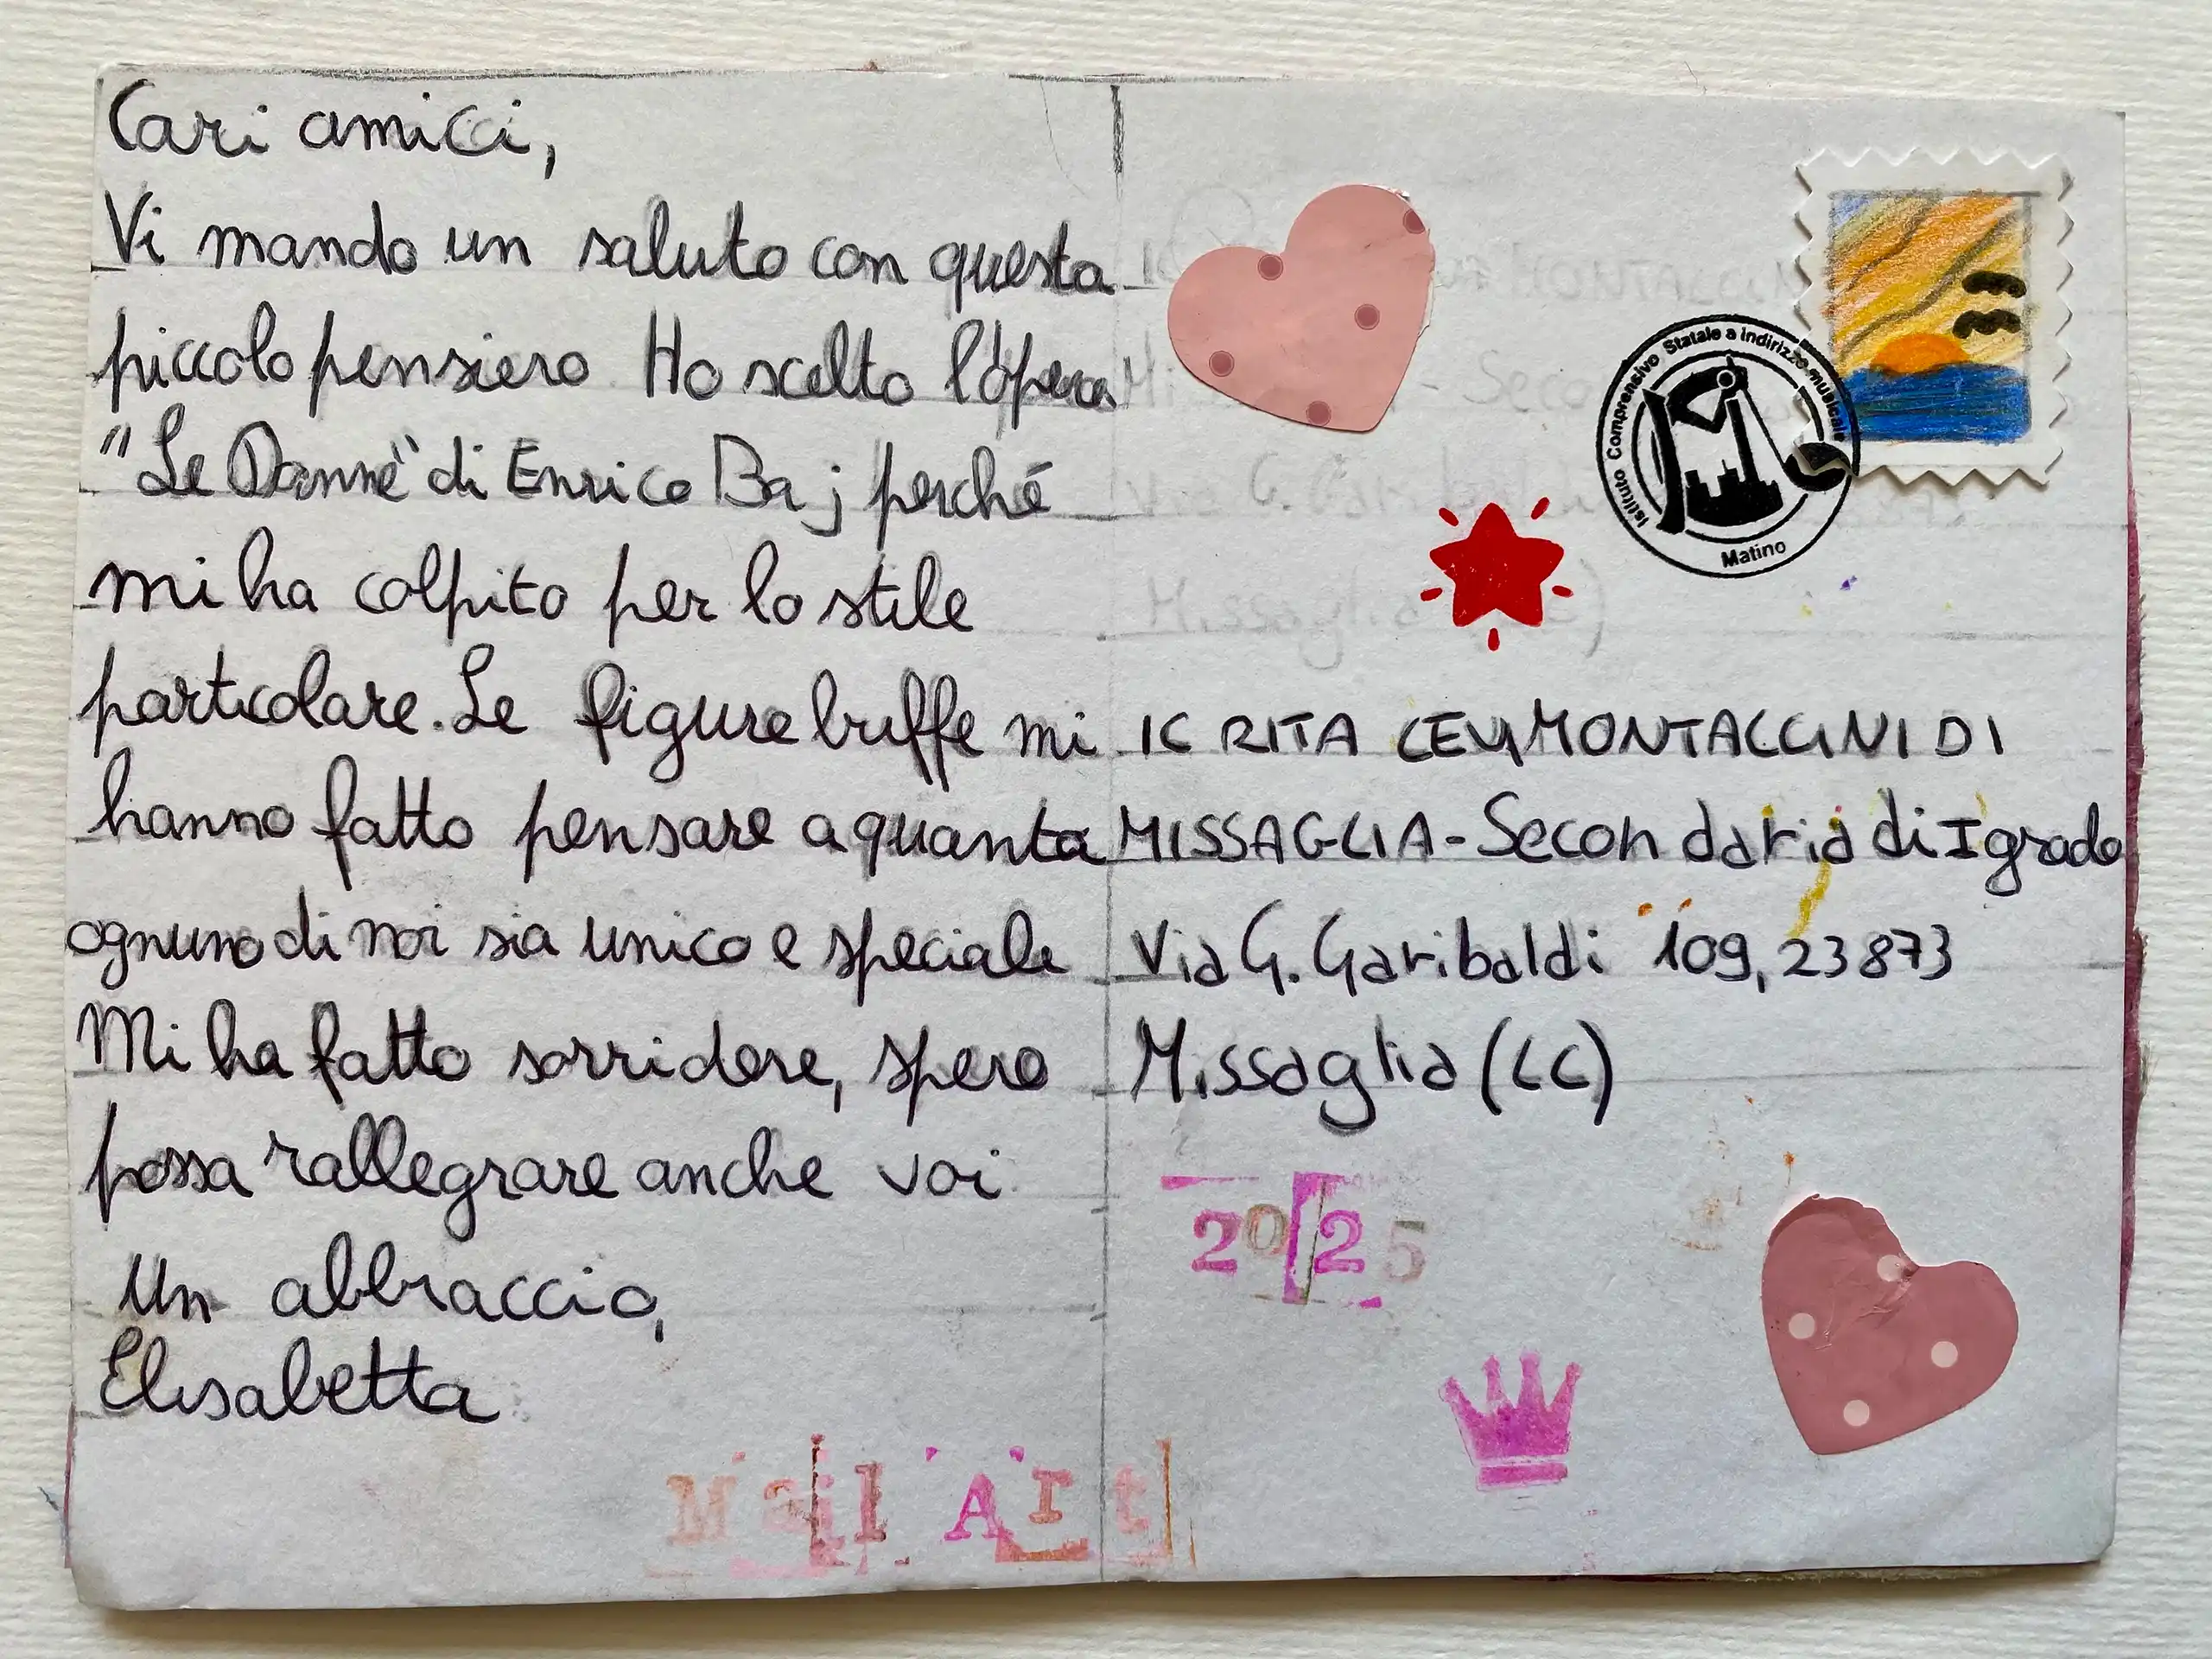 Cari amici,
Vi mando un saluto con questa
piccolo pensiero. Ho scelto l'opera
"Le Donne" di Enrico Baj perché
mi ha colpito per lo stile
particolare. Le figure buffe mi
hanno fatto pensare a quanta
ognuno di noi sia unico e speciale
Mi ha fatto sorridere, spero
possa rallegrare anche voi
Un abbraccio,
Elisabetta
Mail Art
Istituto Comprensivo Statale a indirizzo musicale
Matino
IC RITA LEVI MONTALCINI DI
MISSAGLIA - Secondaria di I grado
Via G. Garibaldi 109, 23873
Missaglia (LC)
2025